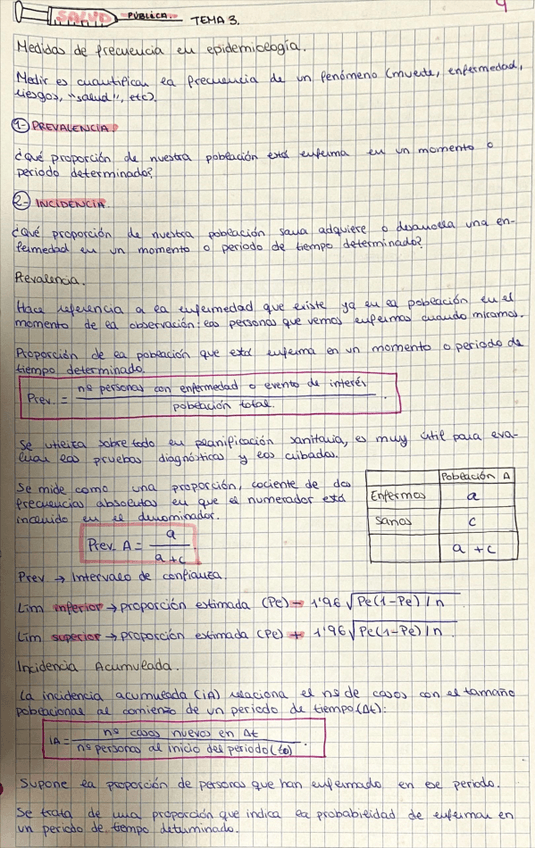 4
SALUD PÚBLICA. TEMA 3.
Medidas de frecuencia en epidemiología.
Medir es cuantificar la frecuencia de un fenómeno (muerte, enfermedad,
riesgos, "salud", etc).
1- PREVALENCIA
¿Qué proporción de nuestra población está enferma en un momento o
periodo determinado?
2- INCIDENCIA.
¿Qué proporción de nuestra población sana adquiere o desarrolla una en-
fermedad en un momento o periodo de tiempo determinado?
Prevalencia.
Hace referencia a la enfermedad que existe ya en la población en el
momento de la observación: las personas que vemos enfermas cuando miramos.
Proporción de la población que está enferma en un momento o periodo de
tiempo determinado.
Prev. = nº personas con enfermedad o evento de interés / población total.
Se utiliza sobre todo en planificación sanitaria, es muy útil para eva-
luar las pruebas diagnósticas y los cribados.
Se mide como una proporción, cociente de dos
frecuencias absolutas en que el numerador está
incluido en el denominador.
Prev. A = a / a+c
Población A
Enfermos a
Sanos c
a + c
Prev → Intervalo de confianza.
Lím inferior → proporción estimada (Pe) - 1'96 √Pe(1-Pe)/n
Lím superior → proporción estimada (Pe) + 1'96 √Pe(1-Pe)/n
Incidencia Acumulada.
La incidencia acumulada (IA) relaciona el nº de casos con el tamaño
poblacional al comienzo de un periodo de tiempo (Δt):
IA = nº casos nuevos en Δt / nº persona al inicio del periodo (t0).
Supone la proporción de personas que han enfermado en ese periodo.
Se trata de una proporción que indica la probabilidad de enfermar en
un periodo de tiempo determinado.